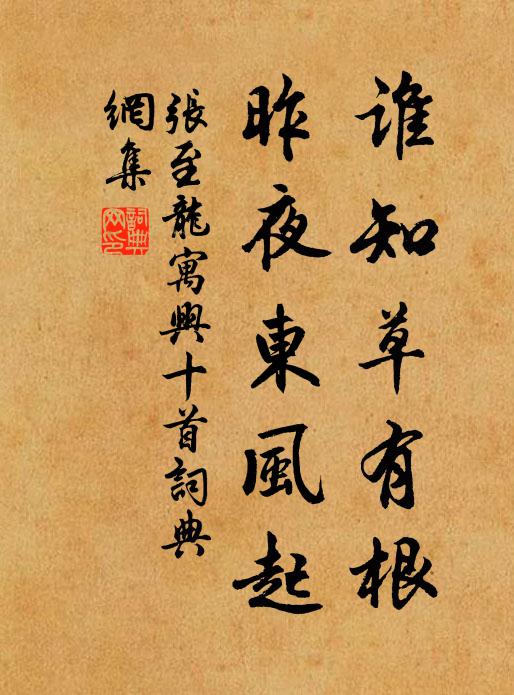 誰知草有根
昨夜東風起
張至龍寓興十首詞典
網集
詞典網印